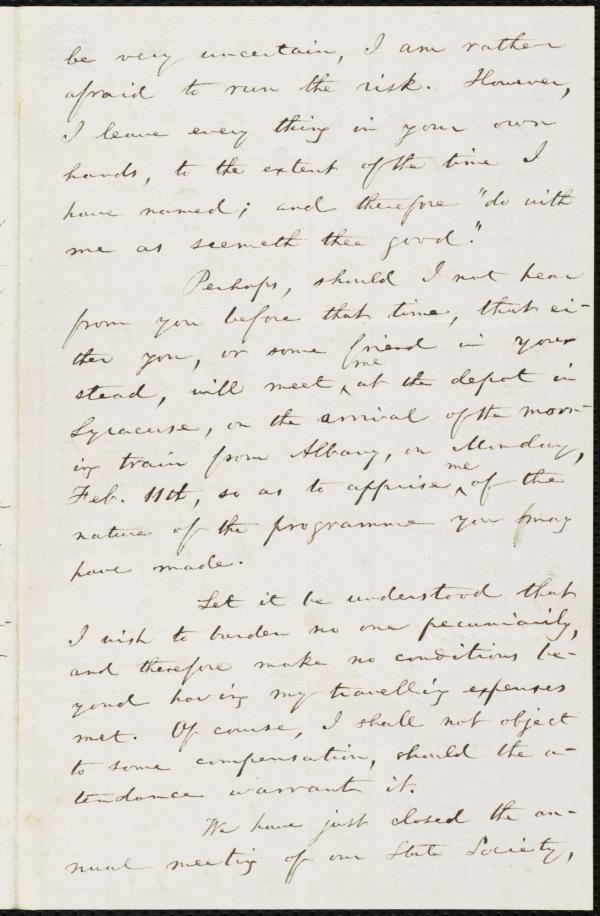 be very uncertain, I am rather
afraid to run the risk. However,
I leave every thing in your own
hands, to the extent of the time I
have named; and therefore "do with
me as seemeth thee good."
Perhaps, should I not hear
from you before that time, that ei-
ther you, or some friend in your
stead, will meet ^me at the depot in
Syracuse, on the arrival of the morn-
ing train from Albany, on Monday,
Feb. 11th, so as to apprise ^me of the
nature of the programme you may
have made.
Let it be understood that
I wish to burden no one pecuniarily,
and therefore make no conditions be-
yond having my travelling expenses
met. Of course, I shall not object
to some compensation, should the a-
tendance warrant it.
We have just closed the an-
nual meeting of our State Society,